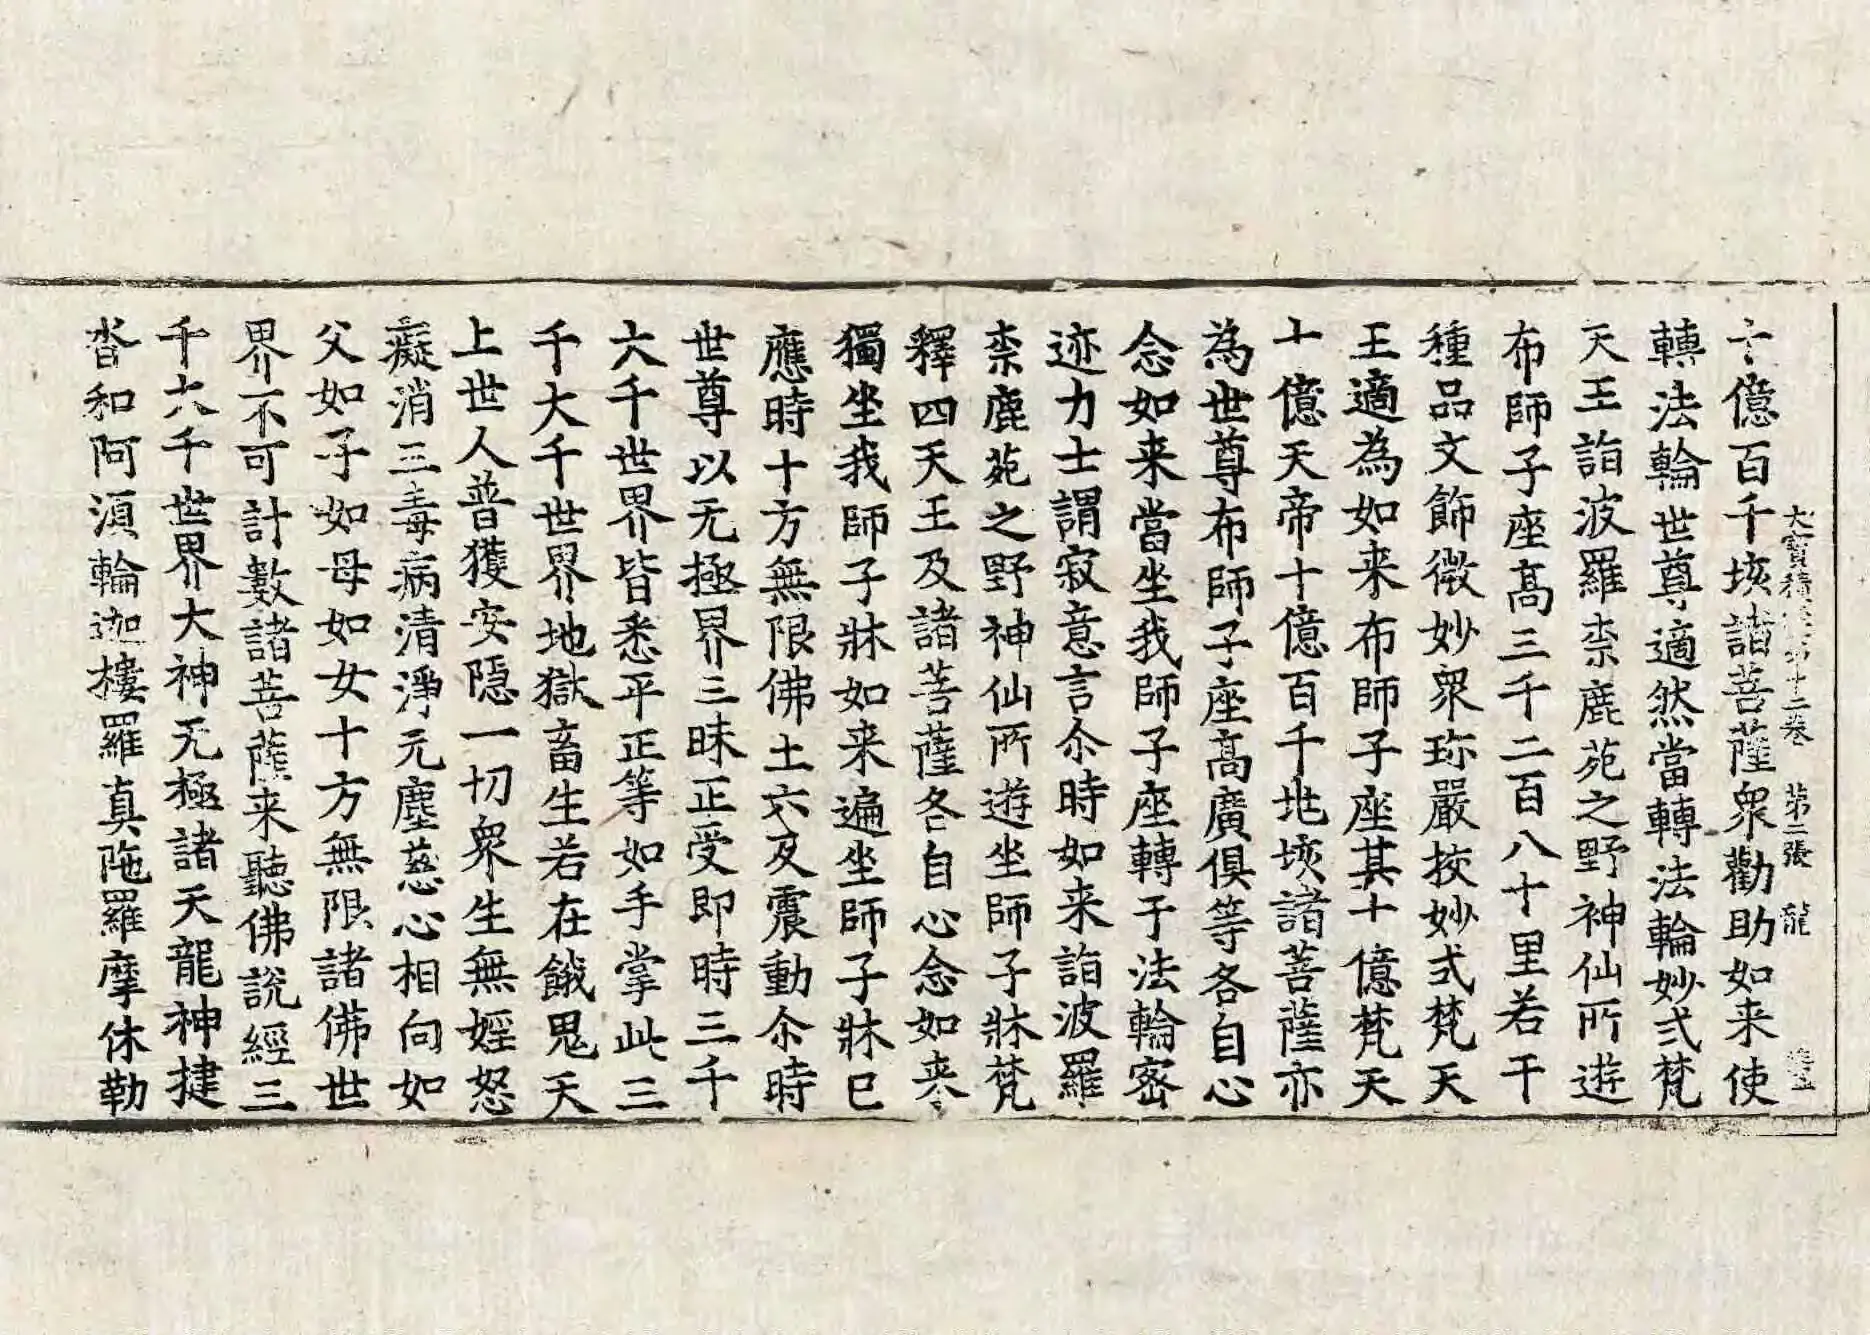 大寶積經第十二卷 第二張 龍
十億百千垓諸菩薩衆勸助如来使
轉法輪世尊適然當轉法輪妙式梵
天王詣波羅柰鹿苑之野神仙所遊
布師子座高三千二百八十里若干
種品文飾微妙衆珎嚴挍妙式梵天
王適為如来布師子座其十億梵天
十億天帝十億百千地垓諸菩薩亦
為世尊布師子座高廣俱等各自心
念如来當坐我師子座轉于法輪密
迹力士謂寂意言尒時如来詣波羅
柰鹿苑之野神仙所遊坐師子牀梵
釋四天王及諸菩薩各自心念如来
獨坐我師子牀如来遍坐師子牀已
應時十方無限佛土六反震動尒時
世尊以无極界三昧正受即時三千
大千世界皆悉平正等如手掌此三
千大千世界地獄畜生若在餓鬼天
上世人普獲安隱一切衆生無婬怒
癡消三毒病清淨无塵慈心相向如
父如子如母如女十方無限諸佛世
界不可計數諸菩薩来聽佛說經三
千大千世界大神无極諸天龍神揵
沓和阿湏輪迦樓羅真陁羅摩休勒